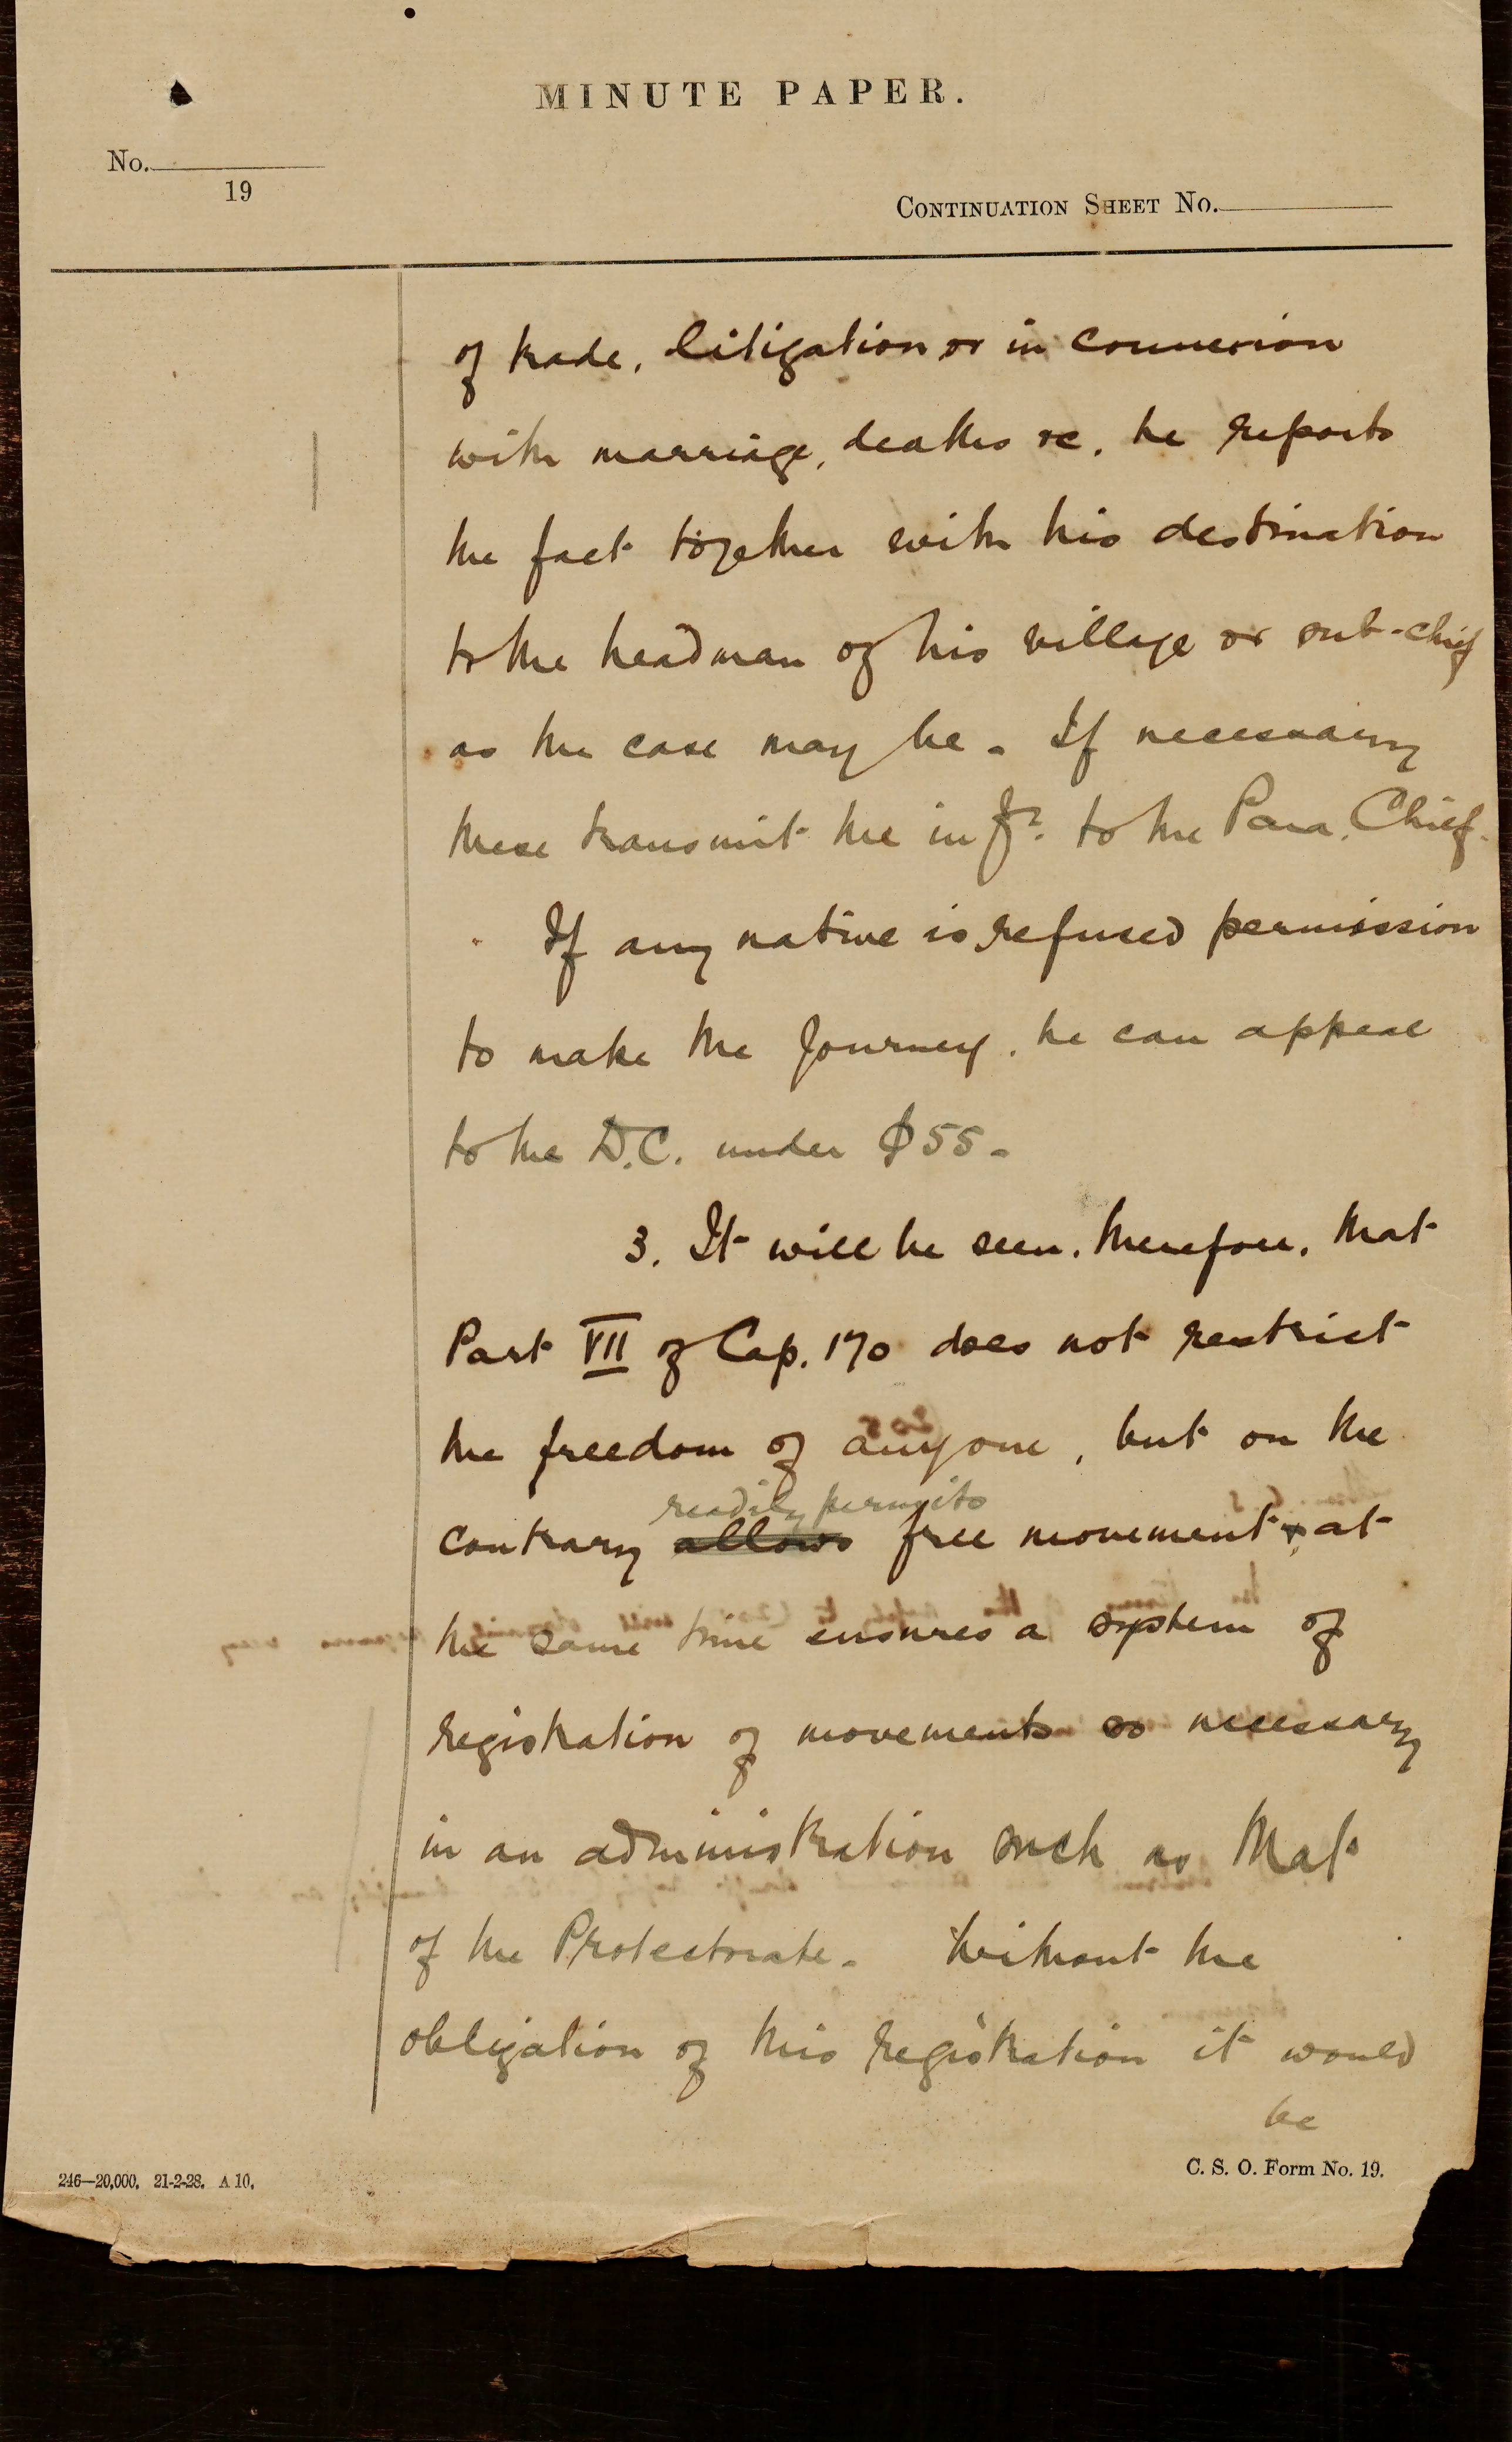 MINUTE PAPER.
No.
19
CONTINUATION SHEET No.
of trade, litigation or in connexion
with marriage, deaths &c, he reports
the fact together with his destination
to the headman of his village or sub-chief
as the case may be. If necessary
these transmit the infn. to the Para. Chief.
If any native is refused permission
to make the journey, he can appeal
to the D.C. under § 55.
3. It will be seen, therefore, that
Part VII of Cap. 170 does not restrict
the freedom of anyone, but on the
readily permits
contrary allows free movement & at
the same time ensures a system of
registration of movements so necessary
in an administration such as that
of the Protectorate. Without the
obligation of this registration it would
be
246—20,000. 21-2-28. A 10.
C. S. O. Form No. 19.